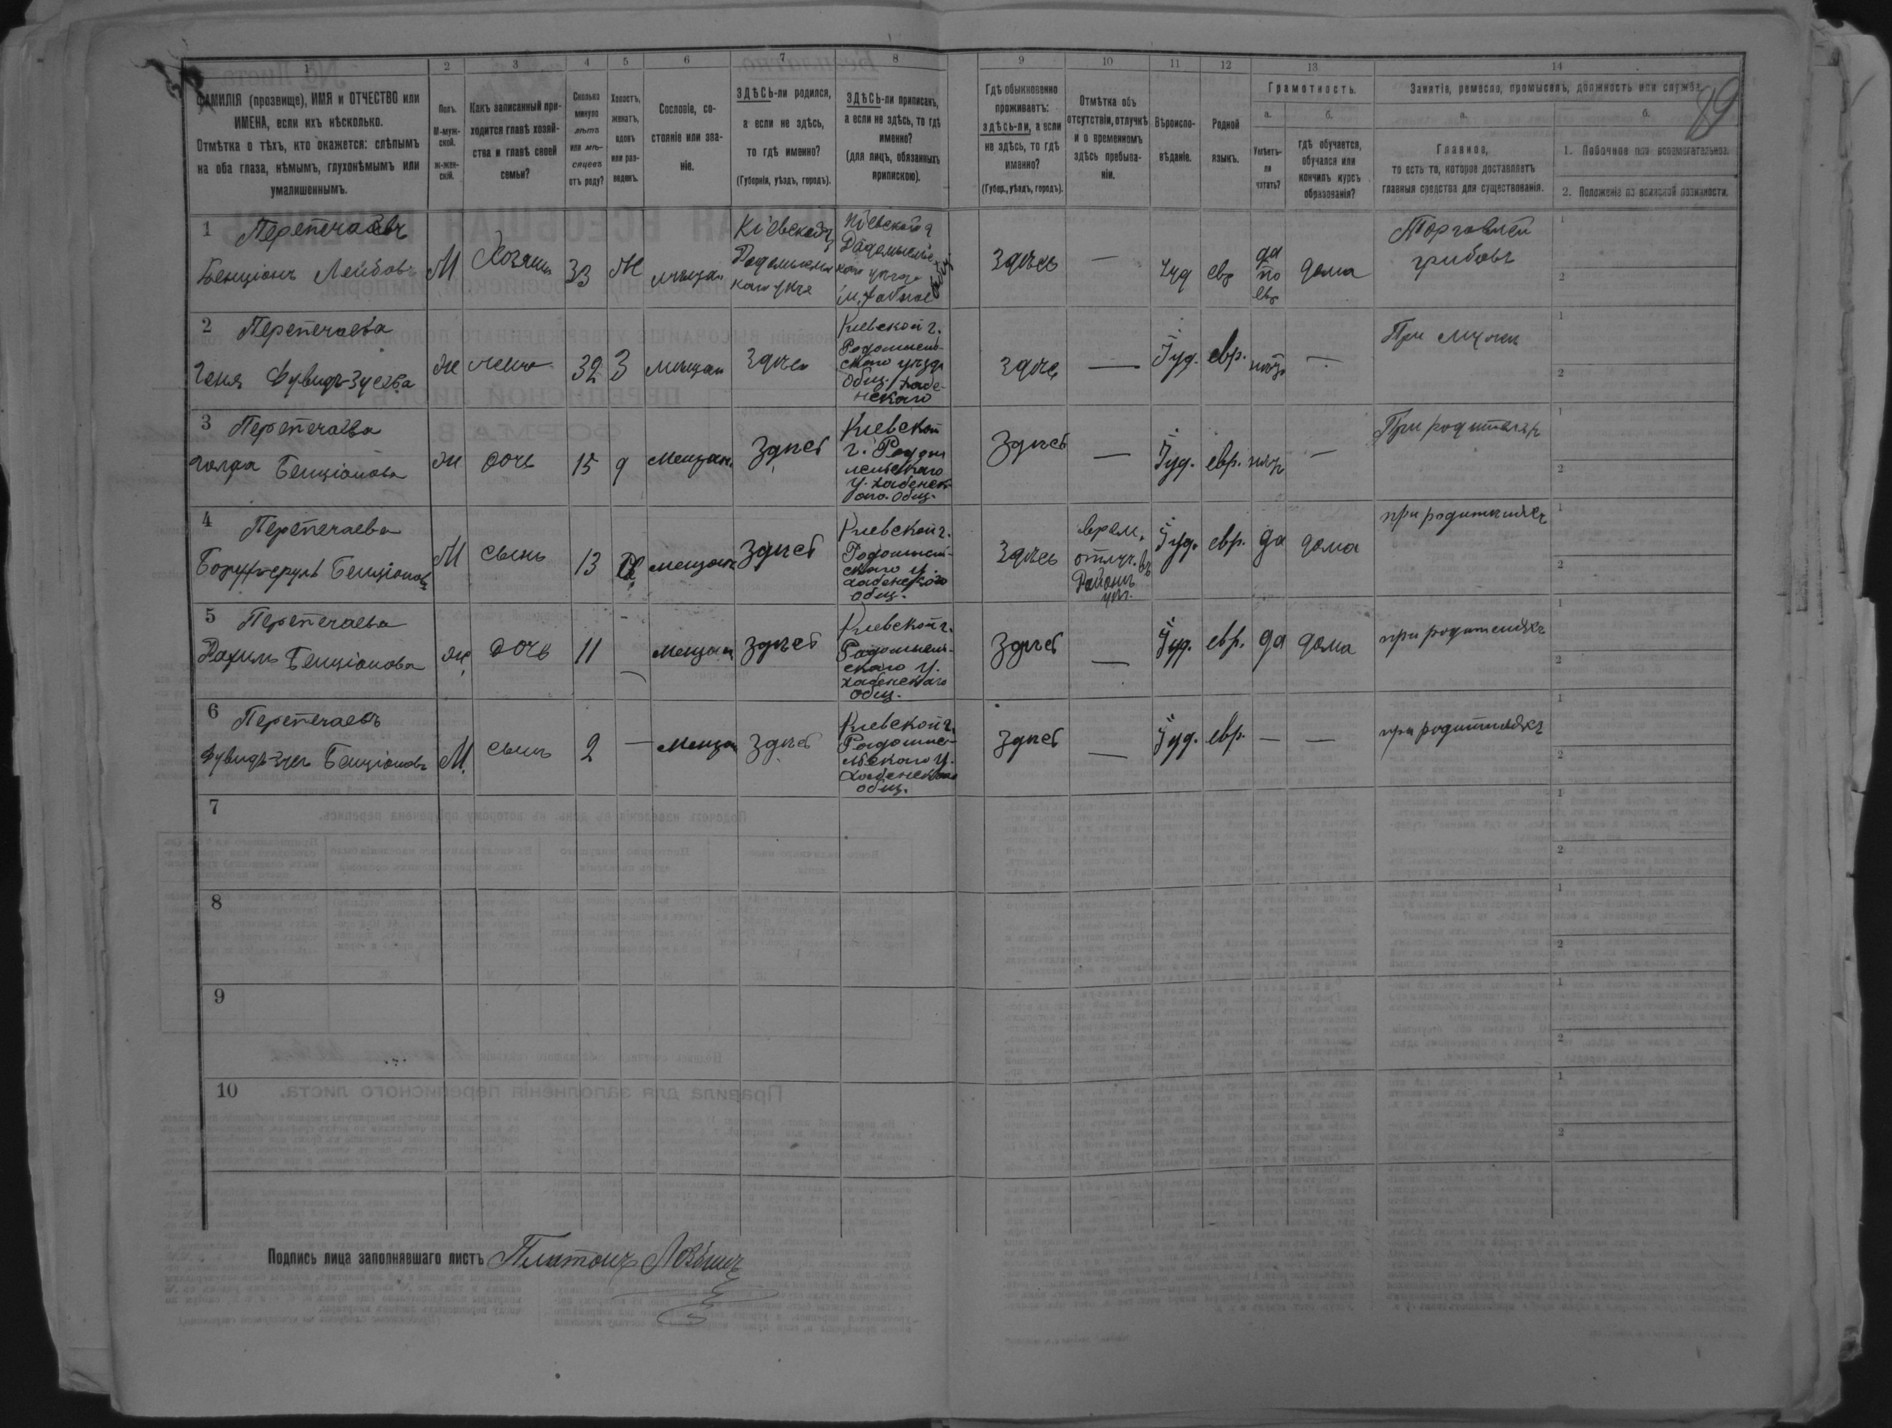 1
2
3
4
5
6
7
8
9
10
11
12
13
14
ФАМИЛІЯ (прозвище), ИМЯ и ОТЧЕСТВО или
ИМЕНА, если ихъ нѣсколько.
Отмѣтка о тѣхъ, кто окажется: слѣпымъ
на оба глаза, нѣмымъ, глухонѣмымъ или
умалишеннымъ.
Полъ.
М-муж-
ской.
Ж-жен-
скій.
Какъ записанный при-
ходится главѣ хозяй-
ства и главѣ своей
семьи?
Сколько
минуло
лѣтъ
или мѣ-
сяцевъ
отъ роду?
Холостъ,
женатъ,
вдовъ
или раз-
веденъ.
Сословіе, со-
стояніе или зва-
ніе.
ЗДѢСЬ-ли родился,
а если не здѣсь,
то гдѣ именно?
(Губернія, уѣздъ, городъ).
ЗДѢСЬ-ли приписанъ,
а если не здѣсь, то гдѣ
именно?
(для лицъ, обязанныхъ
припискою).
Гдѣ обыкновенно
проживаетъ:
здѣсь-ли, а если
не здѣсь, то гдѣ
именно?
(Губер., уѣздъ, городъ).
Отмѣтка объ
отсутствіи, отлучкѣ
и о временномъ
здѣсь пребыва-
ніи.
Вѣроиспо-
вѣданіе.
Родной
языкъ.
Грамотность.
а.
б.
Умѣетъ-
ли
читать?
гдѣ обучается,
обучался или
кончилъ курсъ
образованія?
Занятіе, ремесло, промыселъ, должность или служба.
а.
б.
Главное,
то есть то, которое доставляетъ
главныя средства для существованія.
1. Побочное или вспомогательное.
2. Положеніе по воинской повинности.
89
1 Перепечаевъ
Бенціонъ Лейбовъ
М
Хозяинъ
33
Ж
мѣщан
Кіевской г
Радомысльс
каго уѣзд
Кіевской г
Радомысльс
каго уѣзд
м. Хабное
Здѣсь
—
Іуд
евр
да
по
евр
дома
Торговлей
грибовъ
2 Перепечаева
Геня Дувидъ-Зусева
Ж
жена
32
З
мѣщан
Здѣсь
Кіевской г.
Радомысль-
скаго уѣзда
Общ. Хабе-
нскаго
Здѣс
—
Іуд.
евр.
нѣтъ
—
При мужи
3 Перепечаева
Голда Бенціонова
Ж
дочь
15
д
мещан.
Здѣсь
Кіевской
г. Радом
мельскаго
у. Хабенск
аго. общ.
Здѣсь
—
Іуд.
евр.
нѣтъ
—
При родителях
4 Перепечаевъ
Бенціоновъ
М
сынъ
13
мещан
Здѣсь
Кіевской г.
Радомысль-
скаго у.
хабенскаго
общ.
Здѣсь
врем.
отлуч. въ
Районъ
Іуд.
евр.
да
дома
при родителяхъ
5 Перепечаева
Рахиль Бенціонова
Ж
дочь
11
—
мещан
Здѣсь
Кіевской г.
Радомысль-
скаго у.
хабенскаго
общ.
Здѣсь
—
Іуд.
евр.
да
дома
при родителяхъ
6 Перепечаевъ
Дувидъ-Зусь Бенціоновъ
М.
сынъ
2
—
мещан
Здѣсь
Кіевской г.
Радомыс-
льскаго у.
хабенскаго
общ.
Здѣсь
—
Іуд.
евр.
—
—
при родителяхъ
7
8
9
10
Подпись лица заполнявшаго листъ Платонъ